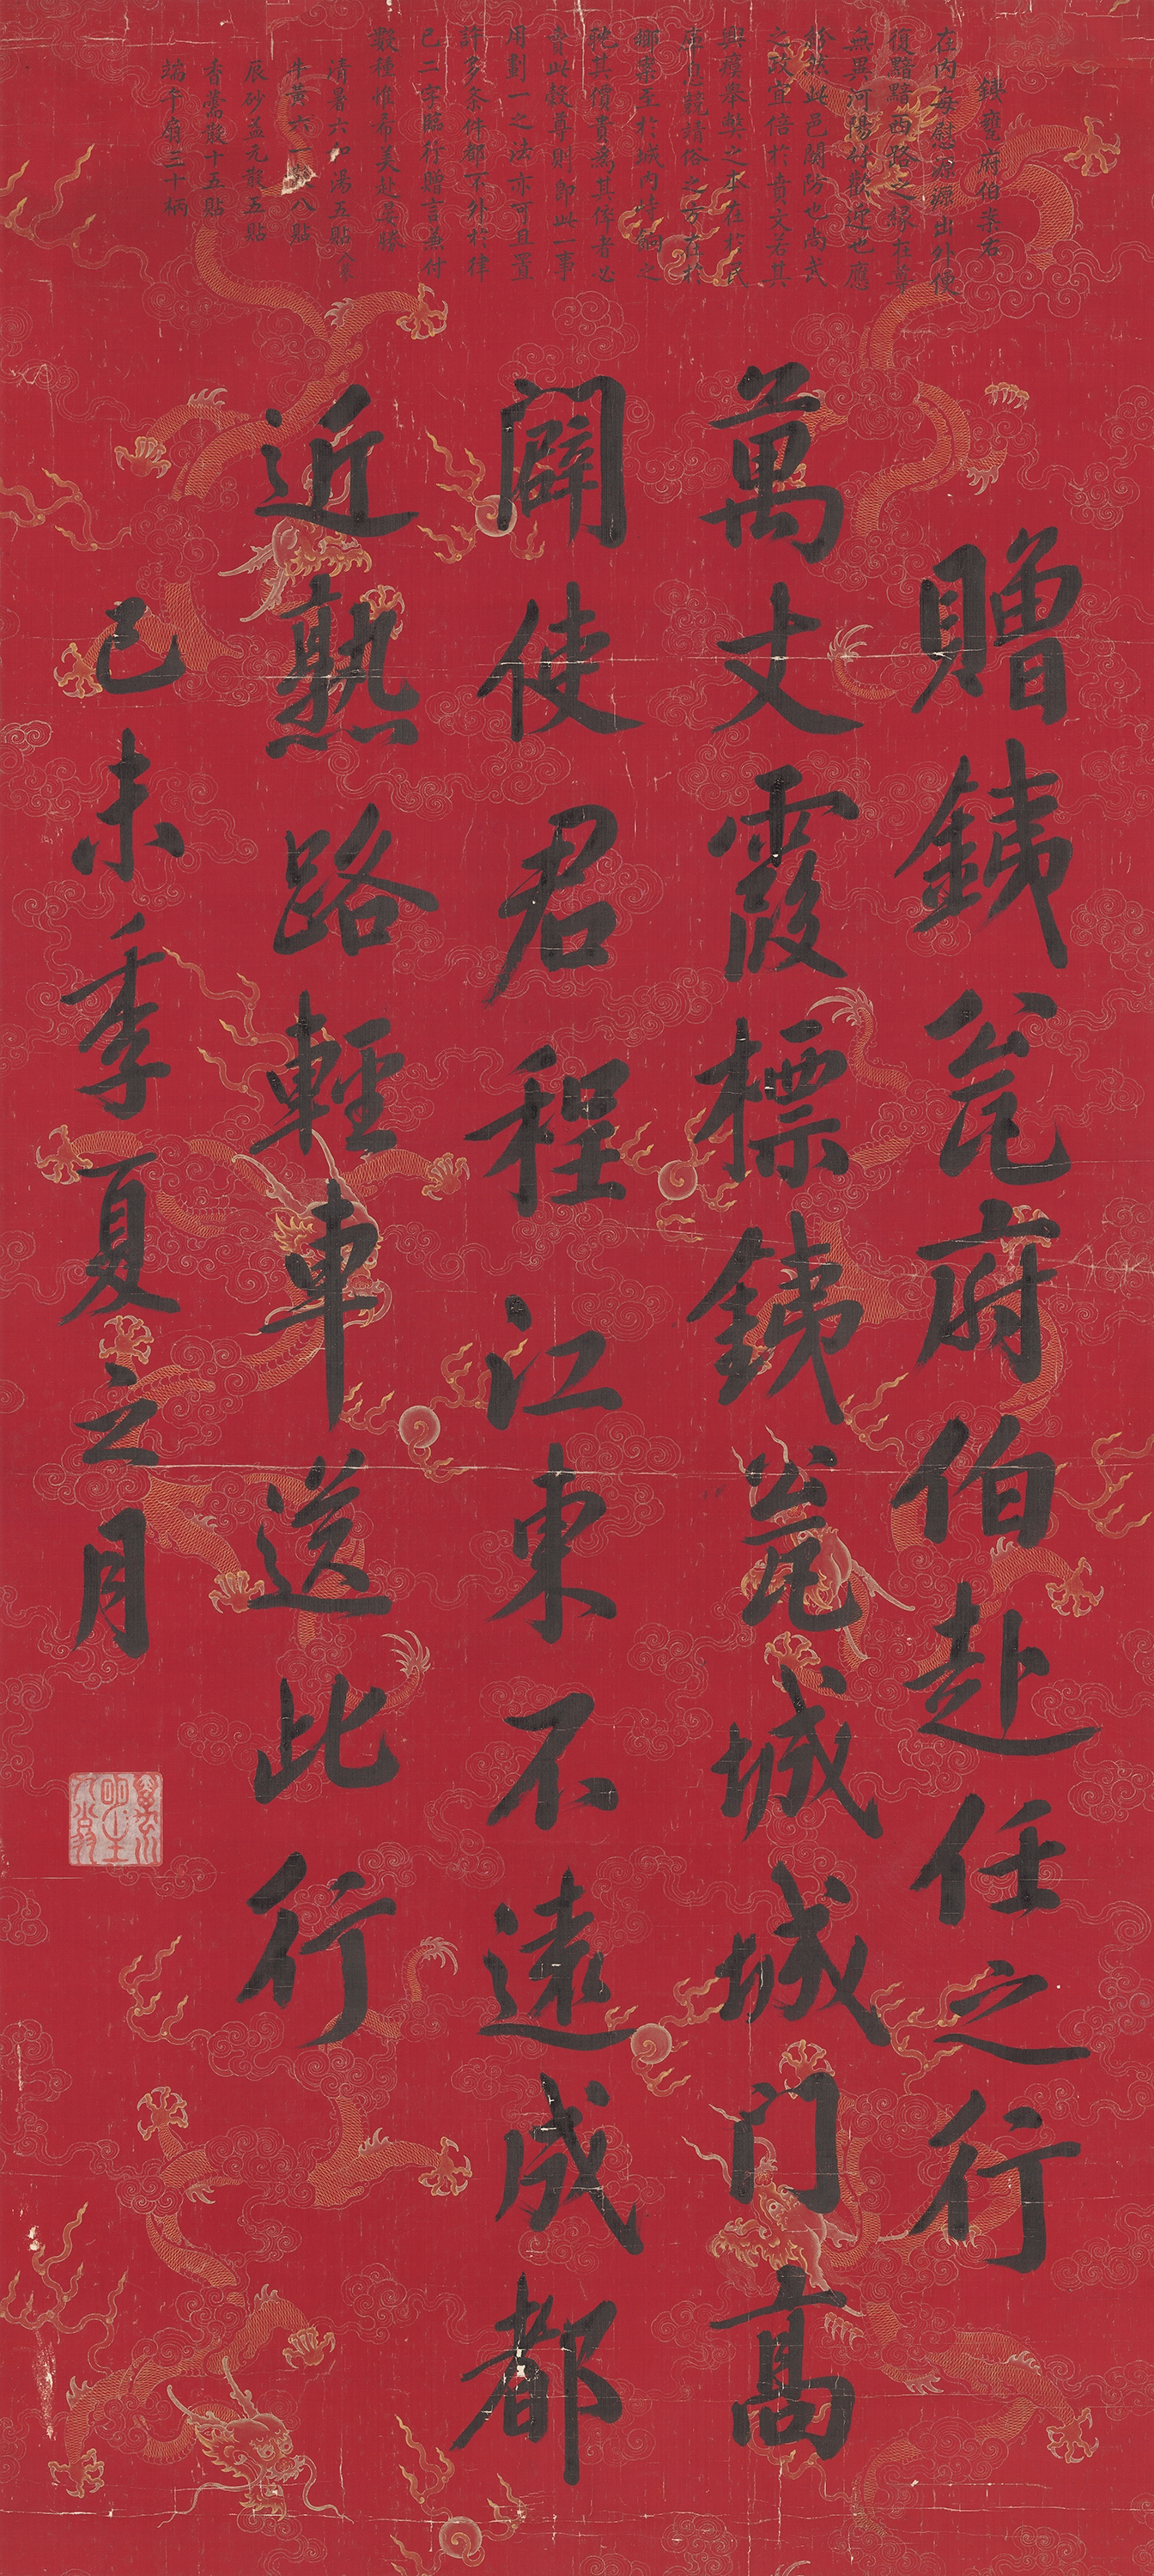 鐵甕府伯柒右
在內每慰源源出外便
復黯黯西路之緣在尊
無異河陽竹歡迎也應
欣然此邑關防也尚武
之政宜倍於賁文若其
興廢舉獘之本在於民
庫息競靖俗之方在於
鄉案至於城內時餉之
其價貴為其倅者必
賣此穀尊則即此一事
用劃一之法亦可且置
許多条件都不外於律
己二字臨行贈言兼付
數種惟希美赴晏勝
清暑六和湯五貼
牛黃六一散八貼
辰砂益元散五貼
香薷散十五貼
端午扇三十柄
贈銕瓮府伯赴任之行
萬丈霞標銕瓮城城门高
闢使君程江東不遠成都
近熟路輕車送此行
己未季夏之月